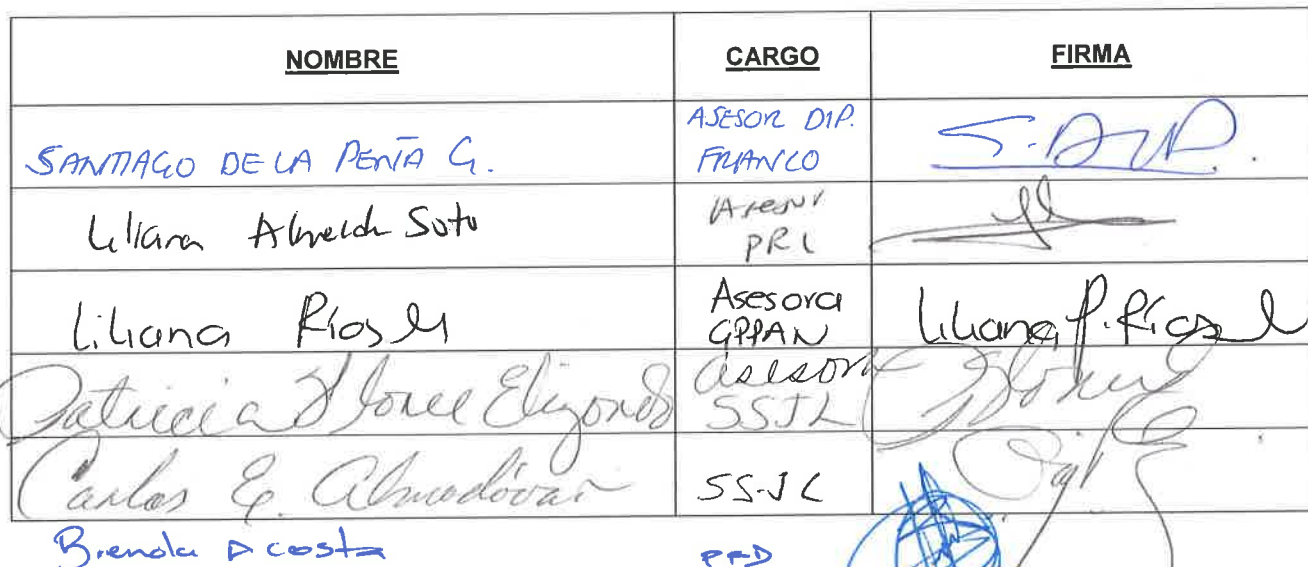 NOMBRE CARGO FIRMA
SANTIAGO DE LA PEÑA G. ASESOR DIP. FRANCO
Liliana Almeida Soto Asesor PRI
Liliana Ríos M Asesora GPPAN Liliana P. Ríos M
Patricia Flores Elizondo asesora SSJL
Carlos E. Almodóvar SS-JL
Brenda Acosta PRD